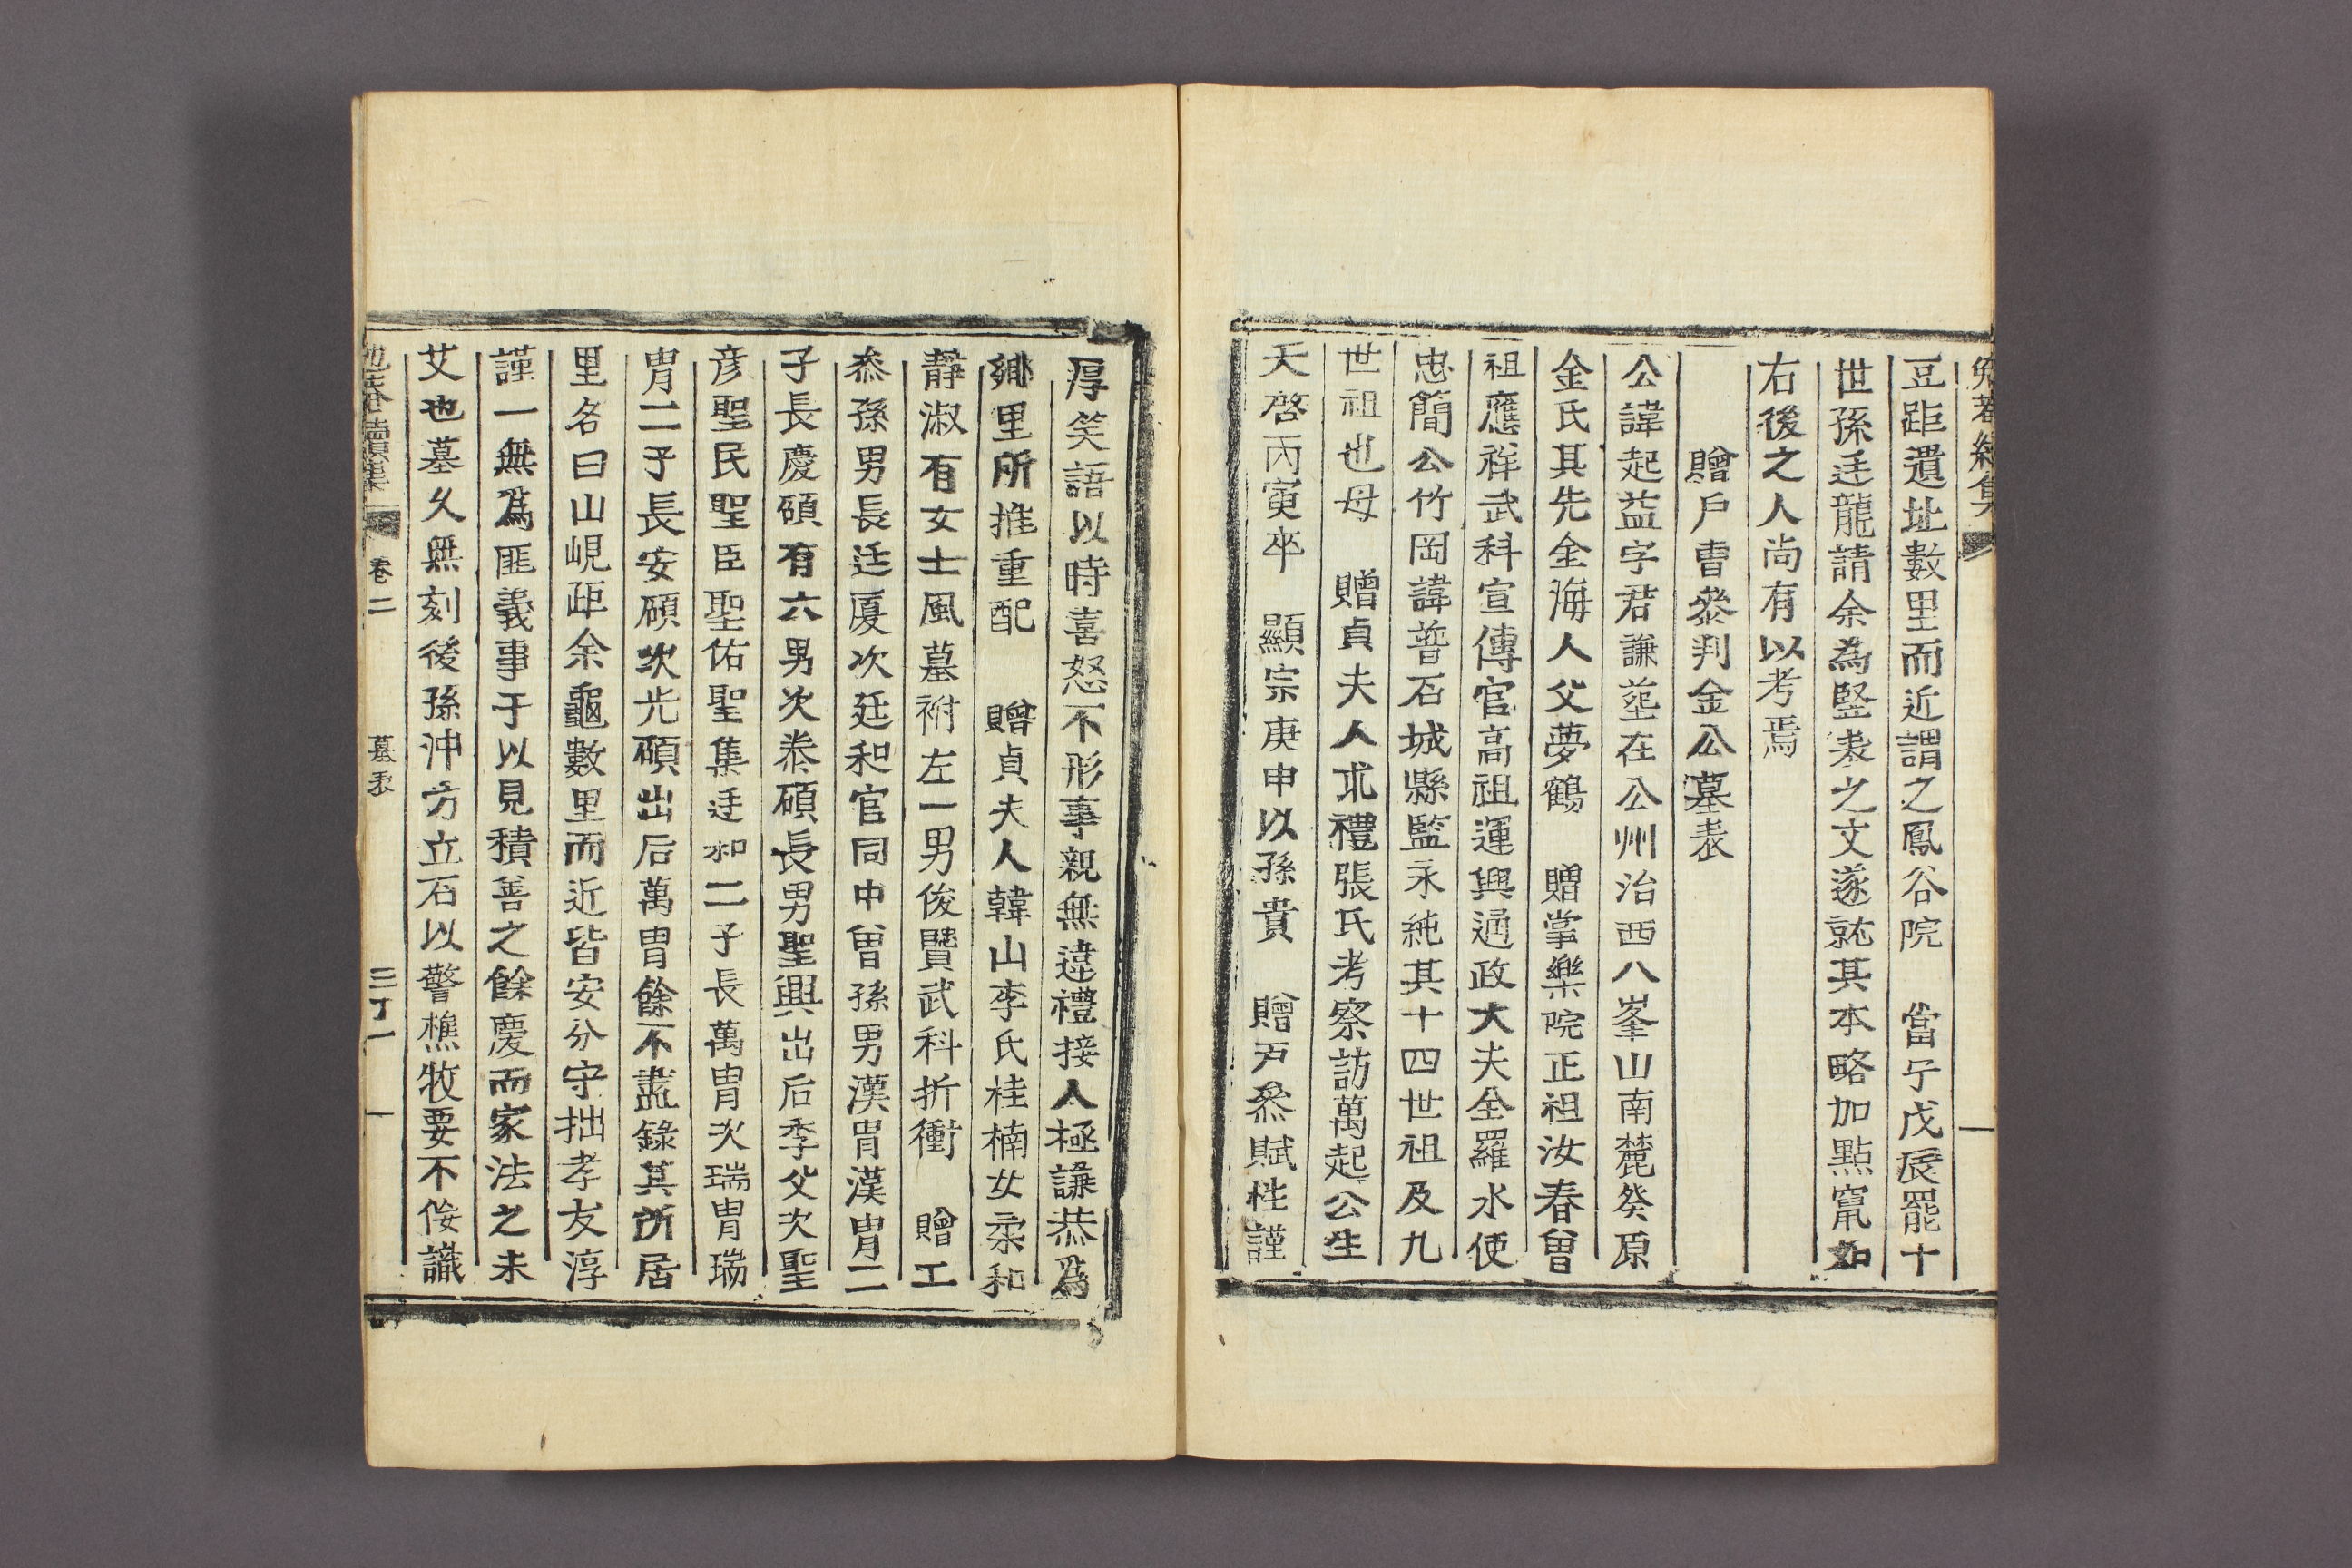 豆距遺址數里而近謂之鳳谷院 當宁戊辰罷十
世孫廷龍請余為竪表之文遂就其本略加點竄如
右後之人尚有以考焉
贈戶曹叅判金公墓表
公諱起益字君謙塟在公州治西八峯山南麓癸原
金氏其先金海人父夢鶴 贈掌樂院正祖汝春曾
祖應祥武科宣傳官高祖運興通政大夫全羅水使
忠簡公竹岡諱普石城縣監永純其十四世祖及九
世祖也母 贈貞夫人求禮張氏考察訪萬起公生
天啓丙寅卒 顯宗庚申以孫貴 贈戶叅賦性謹
厚笑語以時喜怒不形事親無違禮接人極謙恭爲
鄉里所推重配 贈貞夫人韓山李氏桂楠女柔和
靜淑有女士風墓祔左一男俊賢武科折衝 贈工
叅孫男長廷廈次廷和官同中曾孫男漢冑漢冑二
子長慶碩有六男次泰碩長男聖興出后季父次聖
彦聖民聖臣聖佑聖集廷和二子長萬冑次瑞冑瑞
冑二子長安碩次光碩出后萬冑餘不盡錄其所居
里名曰山峴距余龜數里而近皆安分守拙孝友淳
謹一無爲匪義事于以見積善之餘慶而家法之未
艾也墓久無刻後孫沖方立石以警樵牧要不侫識
卷二 墓表 三十一